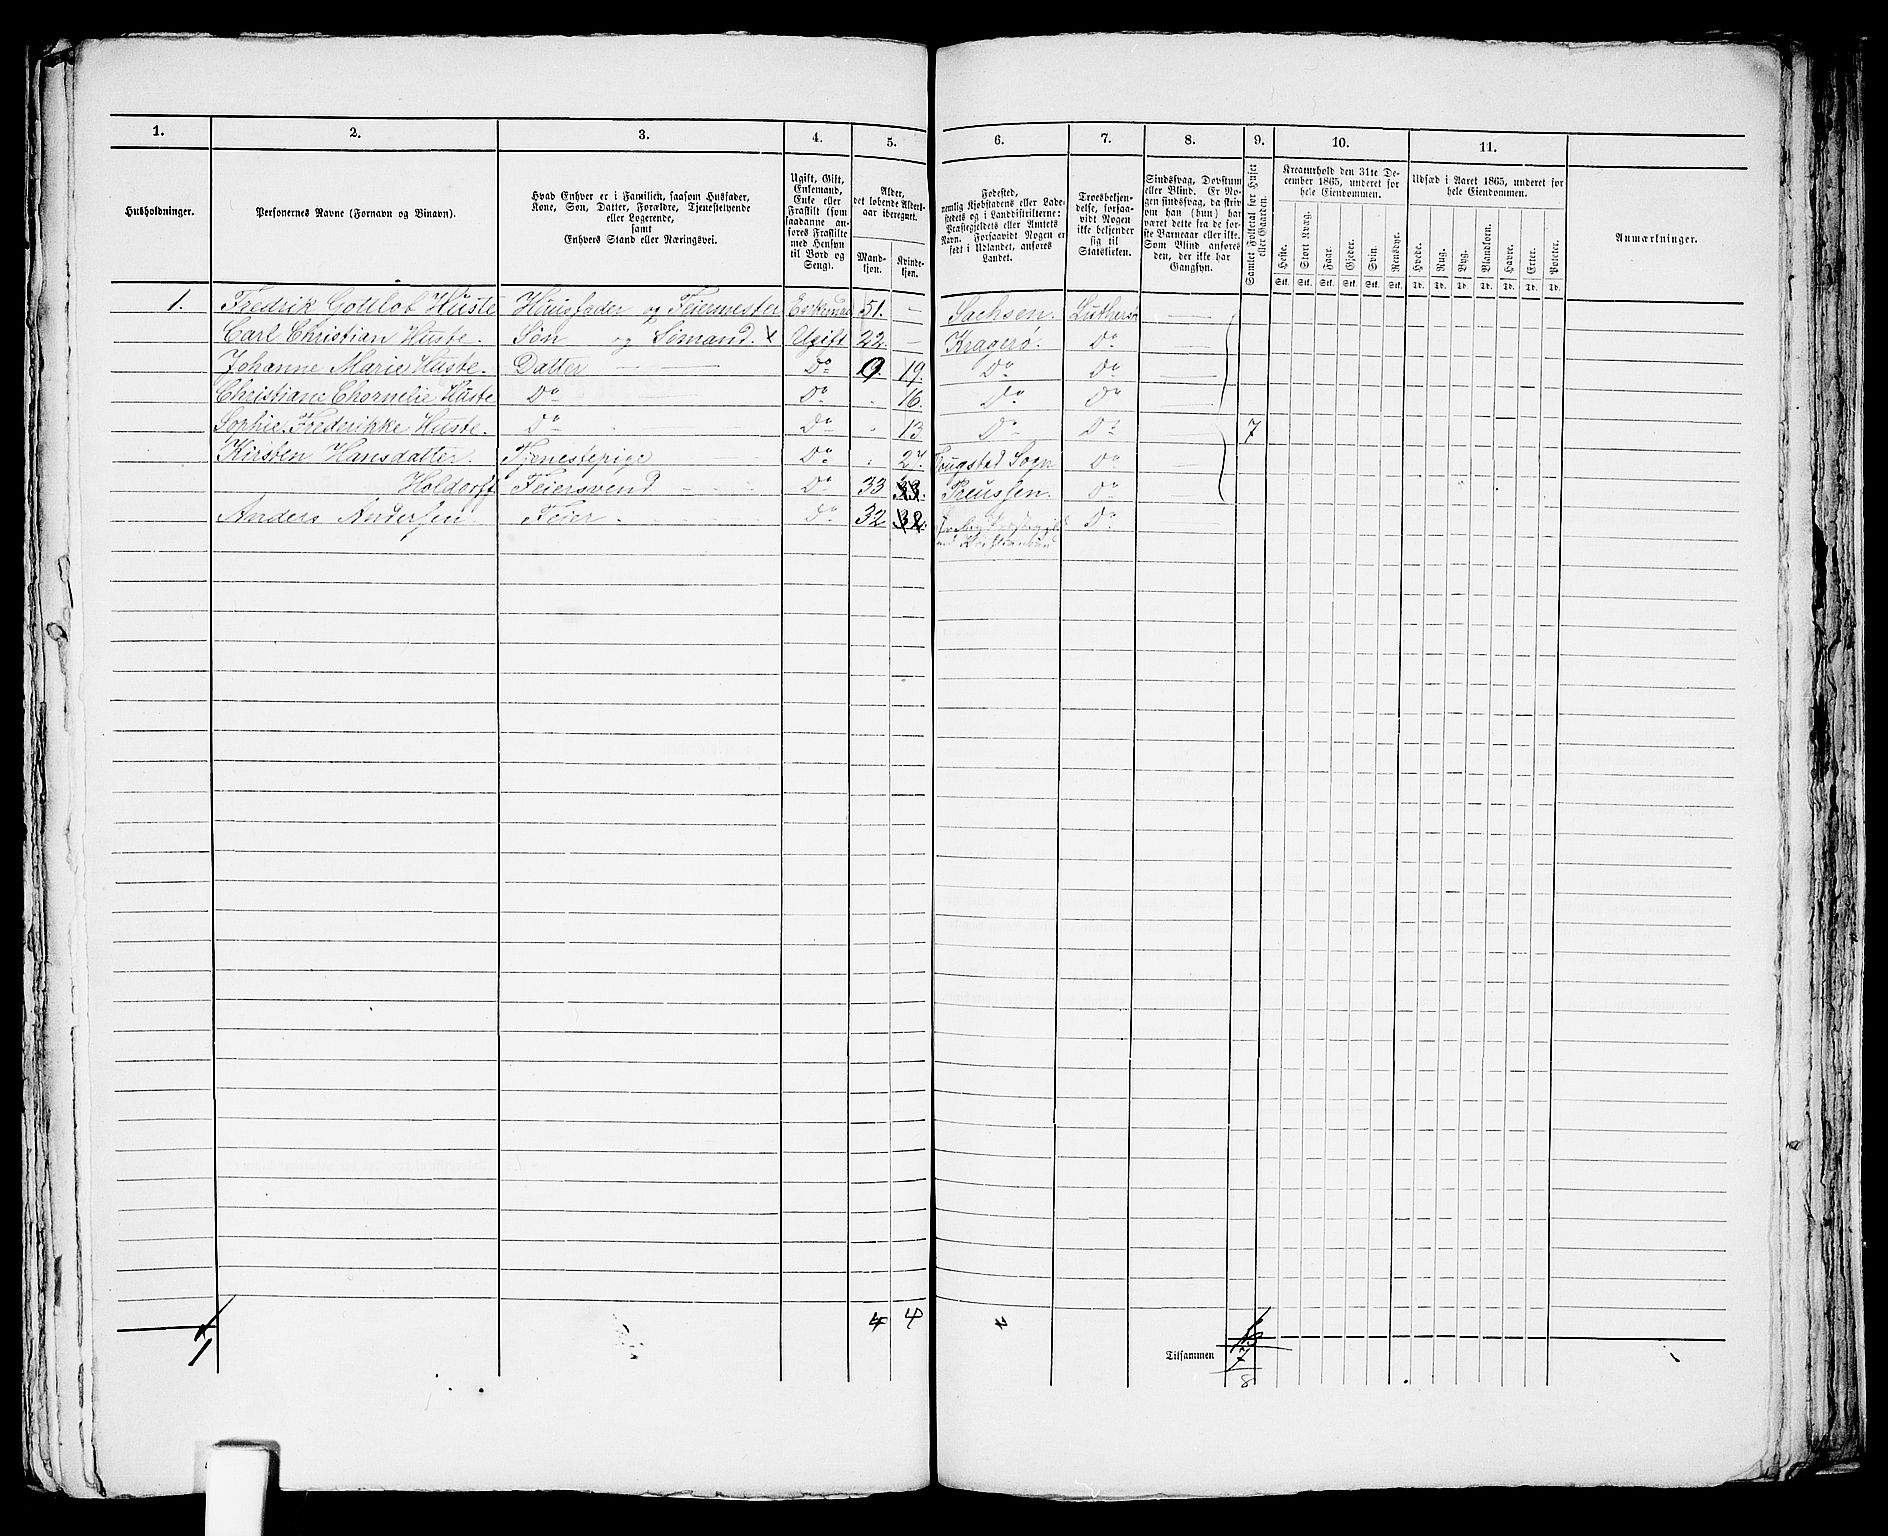 1. 2. 3. 4. 5. 6. 7. 8. 9. 10. 11.
Husholdninger.
Personernes Navne (Fornavn og Binavn).
Hvad Enhver er i Familien, saasom Husfader,
Kone, Søn, Datter, Forældre, Tjenestetyende
eller Logerende,
samt
Enhvers Stand eller Næringsvei.
Ugift, Gift,
Enkemand,
Enke eller
Fraskilt (som
saadanne an-
føres Fraskilte
med Hensyn
til Bord og
Seng).
Alder,
det løbende Alders-
aar iberegnet.
Mand-
kjøn.
Kvinde-
kjøn.
Fødested,
nemlig Kjøbstadens eller Lade-
stedets og i Landdistrikterne:
Præstegjeldets eller Amtets
Navn. Forsaavidt Nogen er
født i Udlandet, anføres
Landet.
Troesbekjen-
delse, forsaa-
vidt Nogen
ikke bekjender
sig til
Statskirken.
Sindssvag, Døvstum
eller Blind. Er No-
gen sindssvag, da skriv
om han (hun) har
været dette fra de før-
ste Barneaar eller ikke.
Som Blind anføres
den, der ikke har
Gangsyn.
Samlet Folketal for Huset
eller Gaarden.
Kreaturhold den 31te De-
cember 1865, underet for
hele Eiendommen.
Heste. Stort Kvæg. Faar. Gjeder. Svin. Rensdyr.
Stk. Stk. Stk. Stk. Stk. Stk.
Udsæd i Aaret 1865, underet for
hele Eiendommen.
Hvede. Rug. Byg. Blandkorn. Havre. Erter. Poteter.
Td. Td. Td. Td. Td. Td. Td.
Anmærkninger.
1. Fredrik Gottlob Huste Huusfader og Feiermester Enkemand 51. — Sachsen. Luthersk
Carl Christian Huste. Søn og Sömand. x Ugift 22. — Kragerø. Do
Johanne Marie Huste. Datter — — Do 0. 19. Do Do
Christiane Chornelie Huste Do Do 16. Do Do
Sophie Frederikke Huste. Do Do 13 Do Do 7
Kirsten Hansdatter. Tjenestepige Do 27. Sogn Do
Holdorff Feiersvend Do 33 33. Preussen. Do
Anders Andersen Feier Do 32 32. Do
4 4 4
1
Tilsammen 7
8